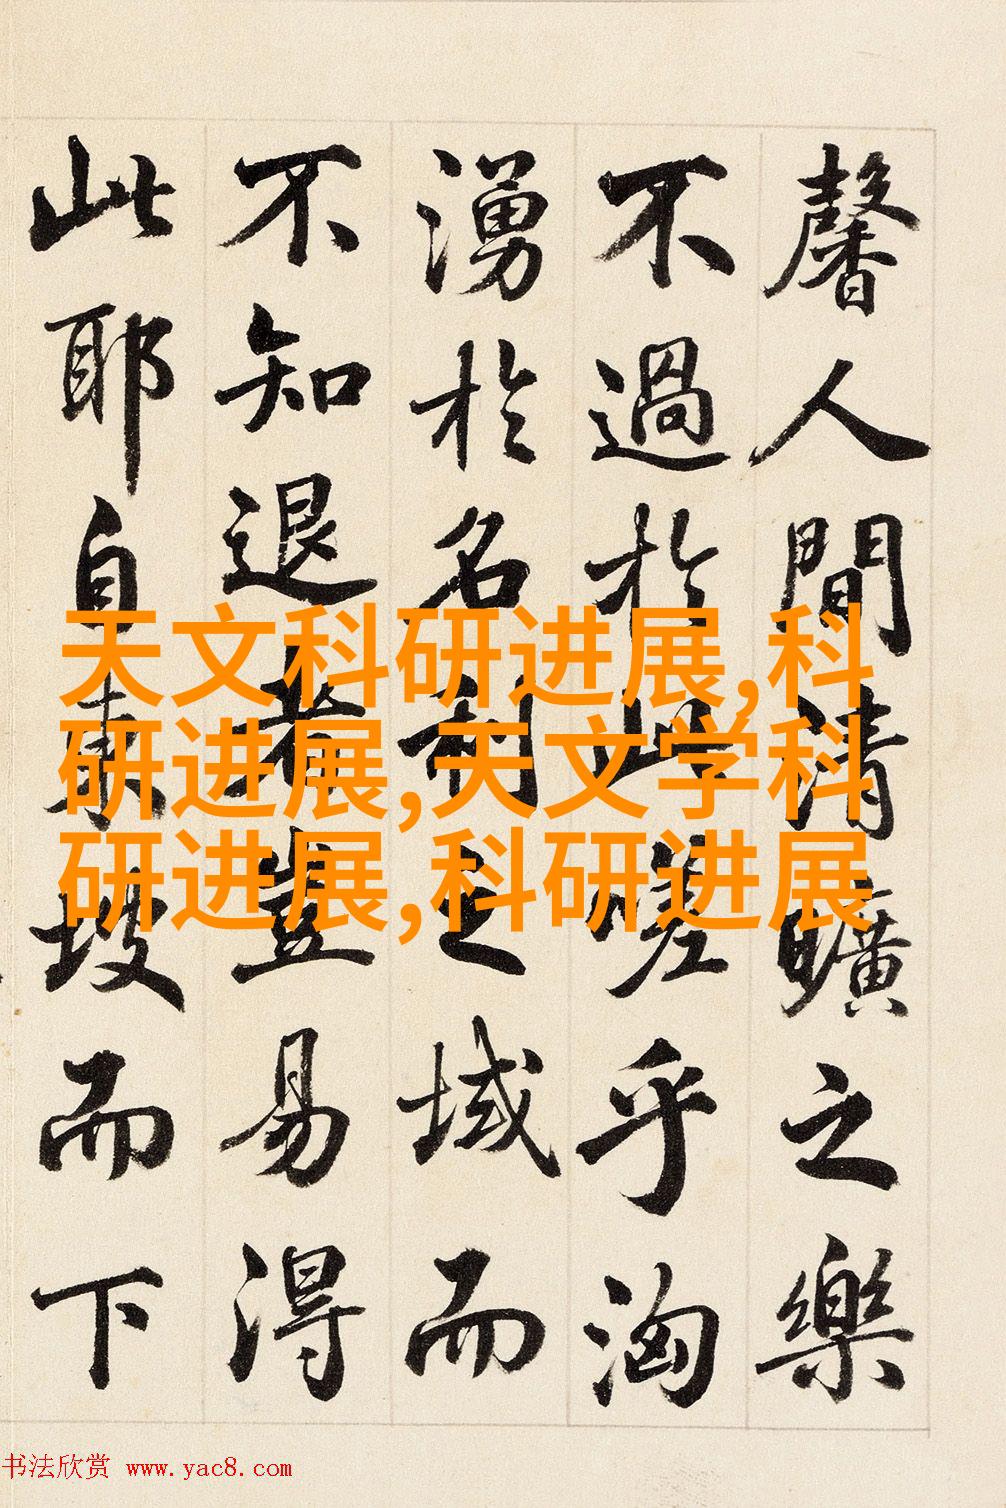 馨人間清曠之樂
不過於此嗟乎洶
湧於名利之域而
不知退者豈易得
此耶自東坡而下
天文科研进展,科
研进展,天文学科
研进展,科研进展
书法欣赏 www.yac8.com